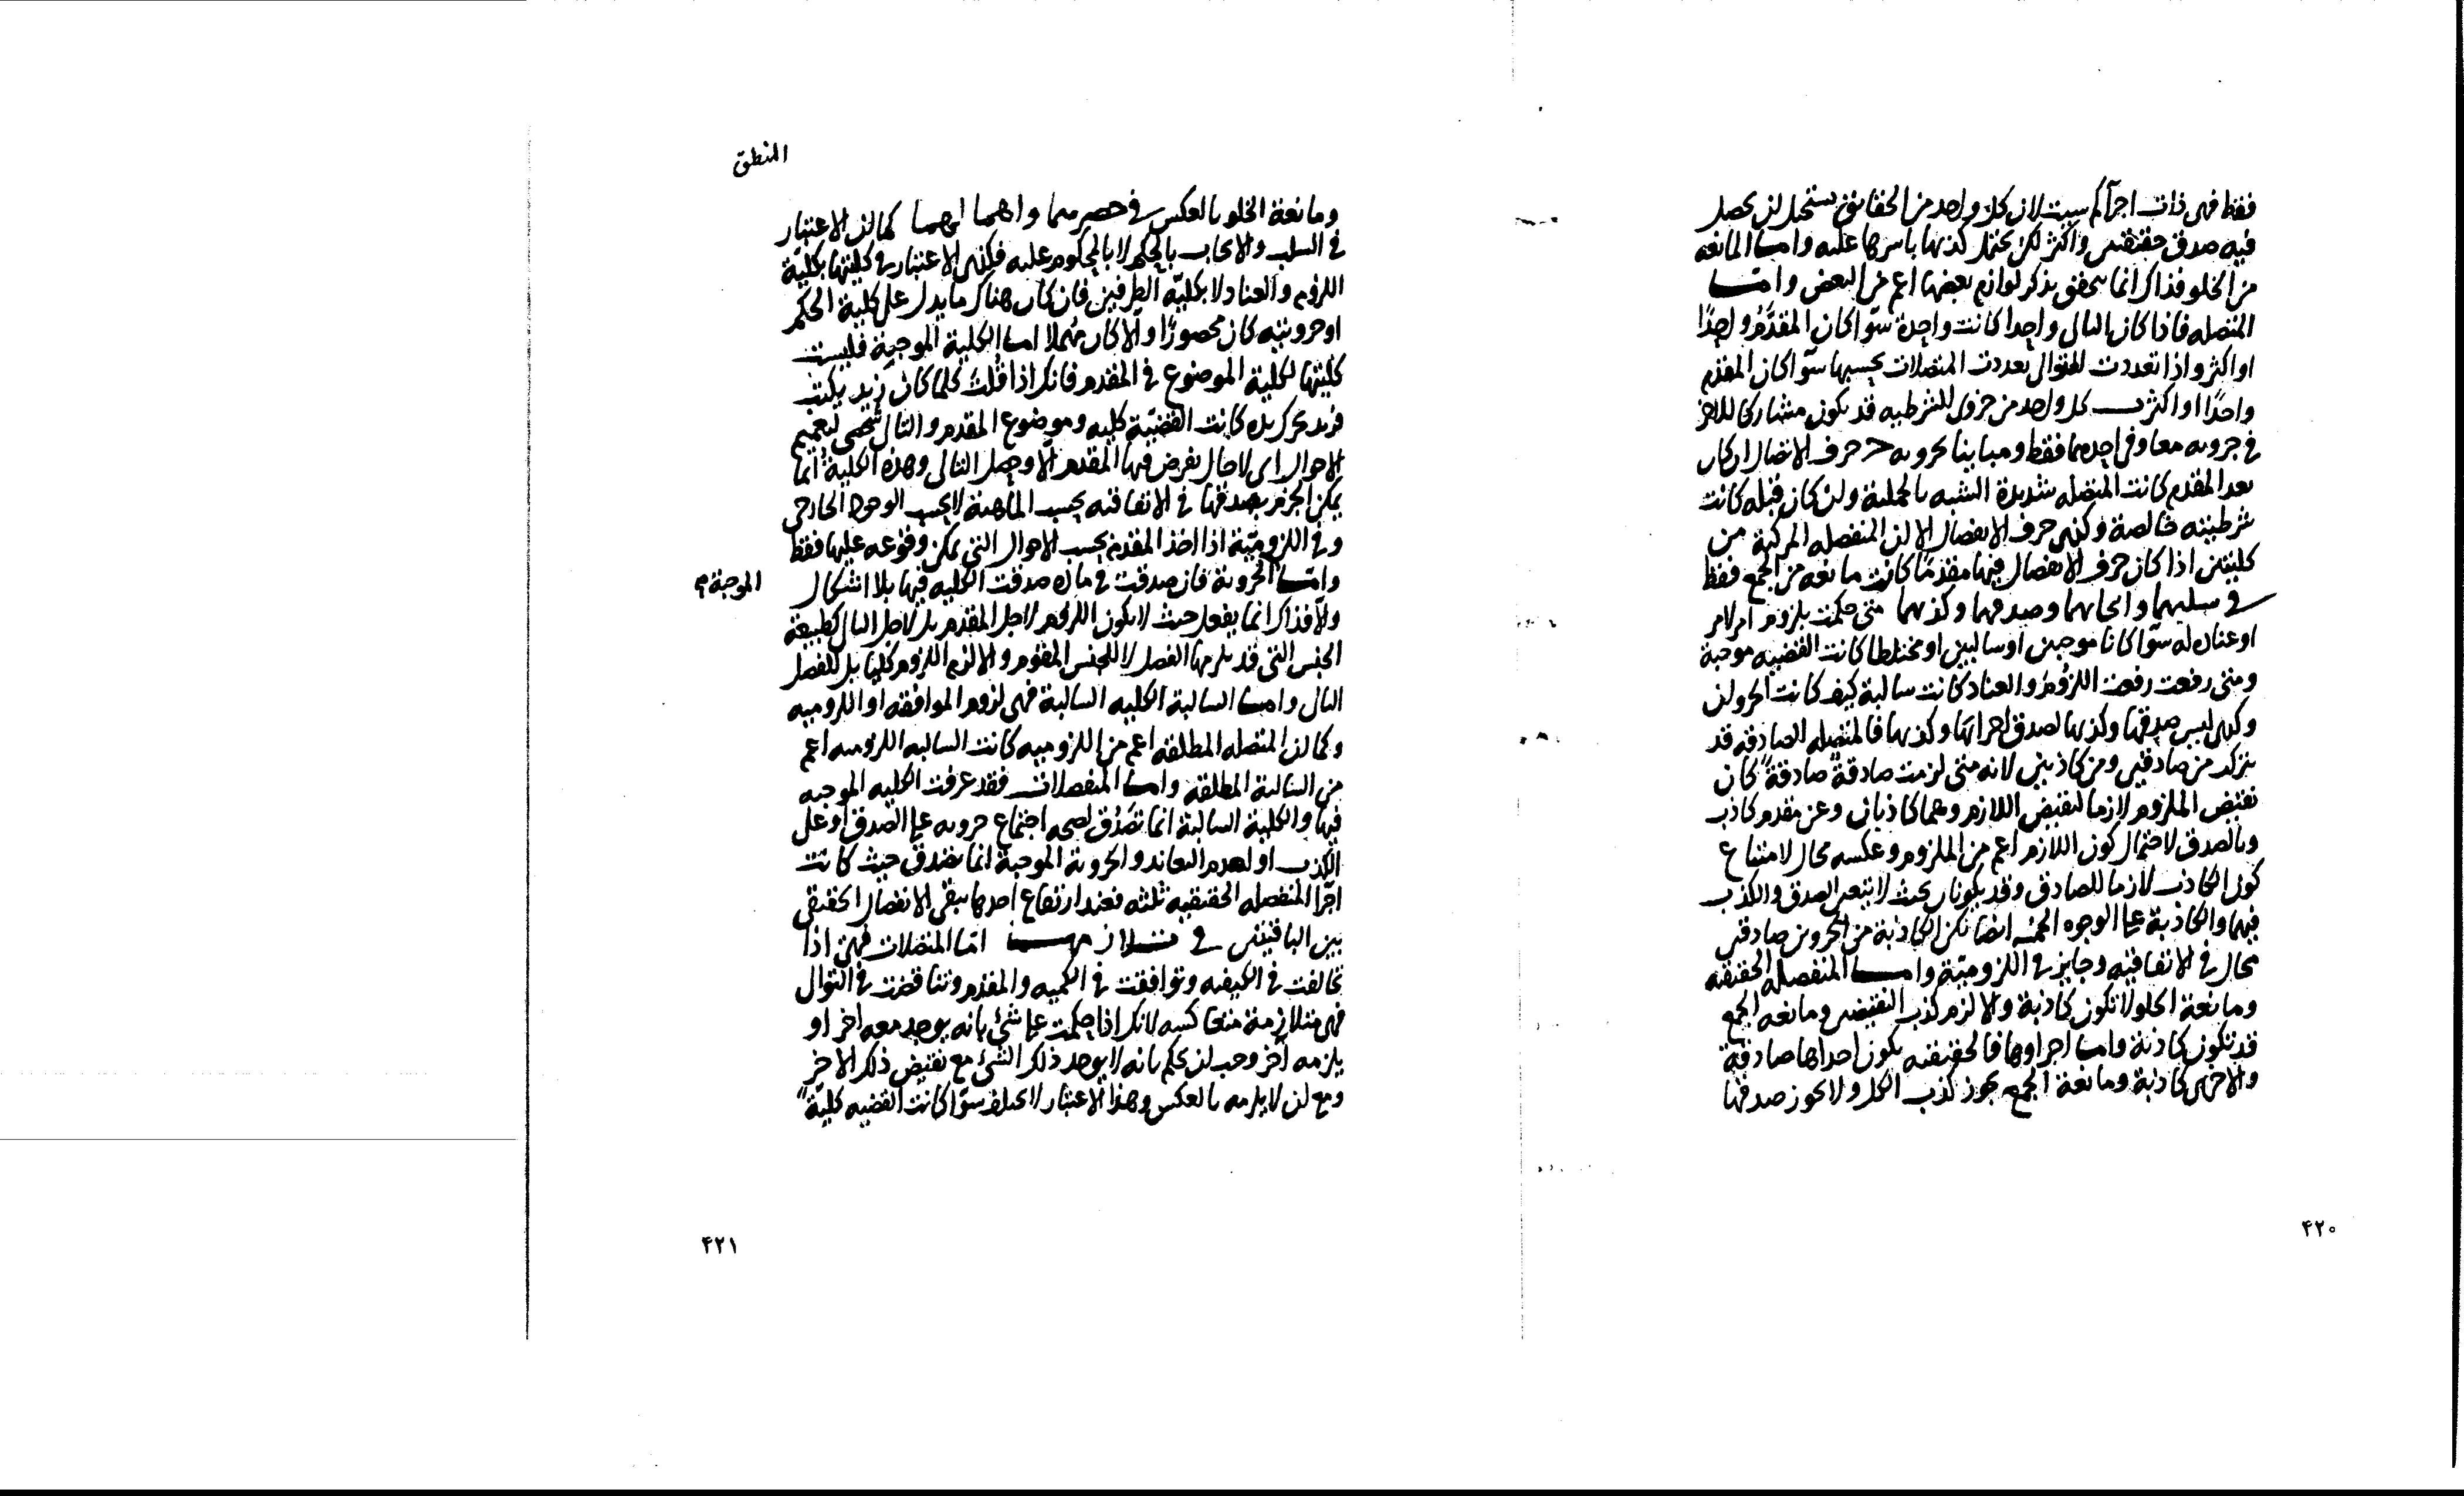 فقط فهى ذات اجزآ كم سيت لان كل واحد من الحقايق يستحيل ان يحصل
فيه صدق حقيقتين واكثر لكن يحتمل كذبها باسرها عليه واما المانعه
من الخلو فذاك انما يتحقق بذكر لوازم بعضها اعم من البعض وامّا
المتصله فاذا كان التالى واحدا كانت واحدة سوآ كان المقدّم واحدًا
او اكثر واذا تعددت التوالى تعددت المتصلات بحسبها سوآ كان المقدم
واحدًا او اكثر كل واحد من جزوى الشرطيه قد يكون مشاركا للاخر
فى جزويه معا وفى احدهما فقط ومباينا بجزويه حرف الاتصال ان كان
بعد المقدم كانت المتصله شديدة الشبه بالحملية وان كان قبله كانت
شرطيته خالصة وكذلك حرف الانفصال الا ان المنفصله المركبة من
كليتين اذا كان حرف الانفصال فيها مقدمًا كانت مانعه من الجمع فقط
فى سلبهما وايجابهما وصدقهما وكذبهما متى حكمت بلزوم امر لامر
او عناده له سوآ كانا موجبين او سالبين او مختلطا كانت القضيه موجبة
ومتى رفعت رفعت اللزوم والعناد كانت سالبة كيف كانت الجزوان
وكذلك ليس صدقها وكذبها لصدق اجزائها وكذبها فالمتصله الصادقه قد
تتركب من صادقين ومن كاذبين لانه متى لزمت صادقةً صادقةً كان
نقيض الملزوم لازما لنقيض اللازم وهما كاذبان وعن مقدم كاذب
وتالٍ صدق لاحتمال كون اللازم اعم من الملزوم وعكسه محال لامتناع
كون الكاذب لازما للصادق وقد يكونان بحيث لا يتعين الصدق والكذب
فيهما والكاذبة على الوجوه الخمسه ايضا لكن الكاذبة من الجزوين صادقين
محال فى الاتفاقيّه وجايز فى اللزوميّة وامـا المنفصله الحقيقه
ومانعة الخلو لا تكون كاذبة والا لزم كذب النقيضين ومانعه الجمع
قد تكون كاذبة واما اجزاوها فالحقيقه يكون احداها صادقة
والاخرى كاذبة ومانعة الجمع يجوز كذب الكل ولا يجوز صدقها
۴۲۰
المنطق
ومانعة الخلو بالعكس فى حصرهما واهما لهما كما ان الاعتبار
فى السلب والايجاب بالحكم لا بالمحكوم عليه فكذلك الاعتبار فى كليتها بكليّة
اللزوم والعناد لا بكليّة الطرفين فان كان هناك ما يدل على كلية الحكم
او جزويته كان محصورًا والّا كان مهملا اما الكلية الموجبة فليست
كليتها لكلية الموضوع فى المقدم فانك اذا قلت كلما كان زيد يكتب
فزيد يحرك يده كانت القضيّة كليه وموضوع المقدم والتالى شخصى لتعميم
الاحوال اى لا حال يفرض فيها المقدم الّا وحصل التالى وهذه الكلية انما
يمكن الجزم بصدقها فى الاتفاقيه بحسب الماهية لا بحسب الوجود الخارجى
وفى اللزوميّة اذا اخذ المقدم بحسب الاحوال التى يمكن وقوعه عليها فقط
وامّا الجزوية فان صدقت فى ماده صدقت الكليه فيها بلا اشكال
الموجبة
والّا فذاك انما يفعل حيث لا يكون اللزوم لاجل المقدم بل لاجل التالى كطبيعة
الجنس التى قد يلزمها الفصل لا للجنس المقوم والا لزم اللزوم كليا بل للفصل
التالى وامـا السالبة الكليه السالبة فهى لزوم الموافقه او اللزوميه
وكما ان المتصله المطلقه اعم من اللزوميه كانت السالبه اللزوميه اعم
من السالبة المطلقه وامـا المنفصلات فقد عرفت الكليه الموجبه
فيها والكلية السالبة انما تَصْدُق لصحه اجتماع جزويه على الصدق او على
الكذب او لعدم التعاند والجزوية الموجبة انما تصدق حيث كانت
اجزآ المنفصله الحقيقيه ثلثه فعند ارتفاع احدها يبقى الانفصال الحقيقى
بين الباقيتين فى تلازمهما امّا المتصلات فهى اذا
تخالفت فى الكيفيه وتوافقت فى الكميه والمقدم وتناقضت فى التوالى
فهى متلازمة متعاكسه لانك اذا حكمت على شىء بانه يوجد معه اخر او
يلزمه آخر وجب ان يحكم بانه لا يوجد ذلك الشىء مع نقيض ذلك الاخر
ومع ان لا يلزمه بالعكس وهذا الاعتبار لا يختلف سوآ كانت القضيه كليّةً
۴۲۱